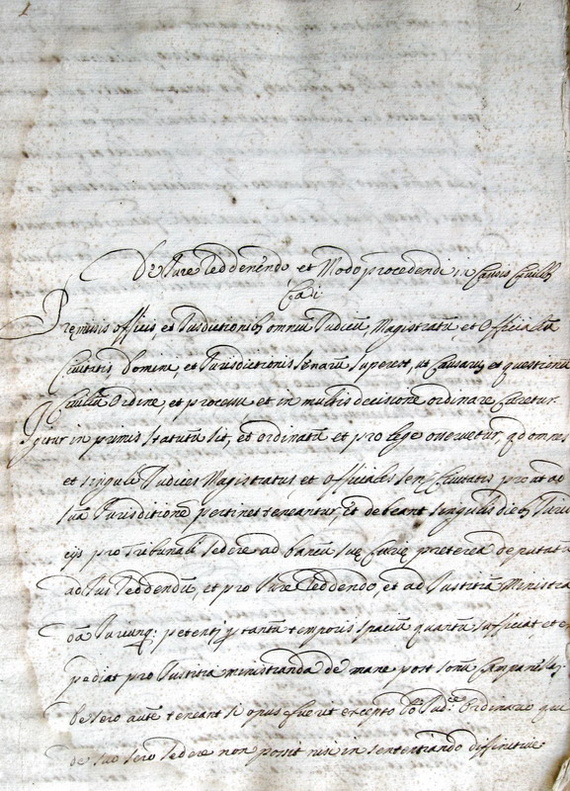 1 1
De Iure Reddenendo et Modo procedendi in Causis Civilib
Cap. i.
Premissis officijs, et Jurisdictionib omniu Judicu, Magistratu et Officialiu
Civitatis Domini, et Jurisdictionis Senaru superest, ut Causaru et questionu
Civiliu Ordine, et processu et in multis decisione ordinare Curetur.
Igitur in primis statutu sit, et ordinatu et pro lege observetur, qd omnes
et singuli Judices Magistratus et Officiales Sen Civitatis prout ad
sua Jurisditione pertinet teneantur, et debeant singulis dieb Juridi
cis pro Tribunali sedere ad bancu sue Curie, preterea deputatu
ad Jus Reddendu, et pro Iure Reddendo, et ad Justitia Ministra
da petenti tantu temporis spaciu quantu sufficiat et ex
pediat pro Justitia ministranda de mane post sonu Campanella,
de sero aute teneant si opus fuerit excepto Do Jud.ce Ordinario qui
de suo sero sedere non posset nisi in sententiando diffinitive